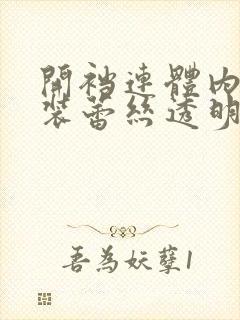 開裆連體內
裝蕾絲透明
吾為妖孽1